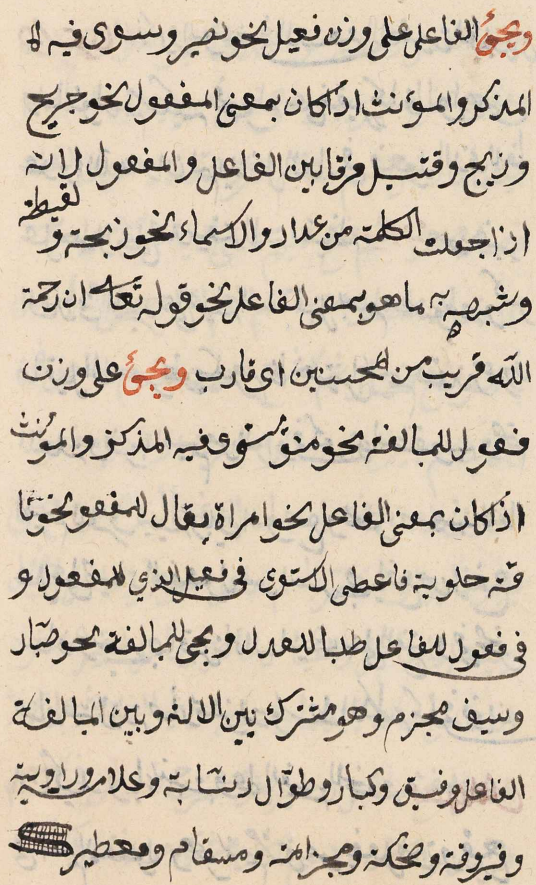 ويجئ الفاعل على وزن فعيل نحو نصير وسوى فيه
المذكر والمؤنث اذا كان بمعنى المفعول نحو جريح
وزبج وقتيل فرقا بين الفاعل والمفعول لانه
اذا جعلت الكلمة من عداد والاسماء نحو زبحة و لقيطة
وشبهه به ما هو بمعنى الفاعل نحو قوله تعا ان رحمة
الله قريب من المحسنين اى قارب ويجئ على وزن
فعول للمبالغة نحو منوع ستوى فيه المذكر والمؤنث
اذا كان بمعنى الفاعل نحو امراة يقال للمفعو نحو نا
قة حلوبة فاعطى الاستوى فى فعيل الذي للمفعول و
فى فعول للفاعل طلبا للعدل ويجى للمبالغة نحو صبار
وسيف مجزم وهو مشترك بين الالة وبين المبالغة
الفاعل وفسق وكبار وطوال ونسابة وعلامة وراوية
وفروقة وضحكة ومجزامة ومسقام ومعطير